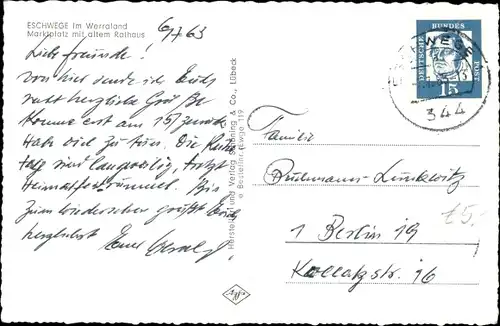 ESCHWEGE im Werraland
Marktplatz mit altem Rathaus
6/7 63
Liebe Freunde!
von hier sende ich Euch
recht herzliche Grüße
komme erst am 15/7 zurück
Habe viel zu tun. Die
sind langweilig, trotz
Heimatfestrummel. Bis
zum Wiedersehen grüßt Euch
herzlichst Euer
Herstellung und Verlag Schöning & Co., Lübeck
Bestellnr. Ewge 119
Agfa
DEUTSCHE BUNDESPOST
15
ESCHWEGE
344
Familie
1 Berlin 19
Kollatzstr. 16
£5.-